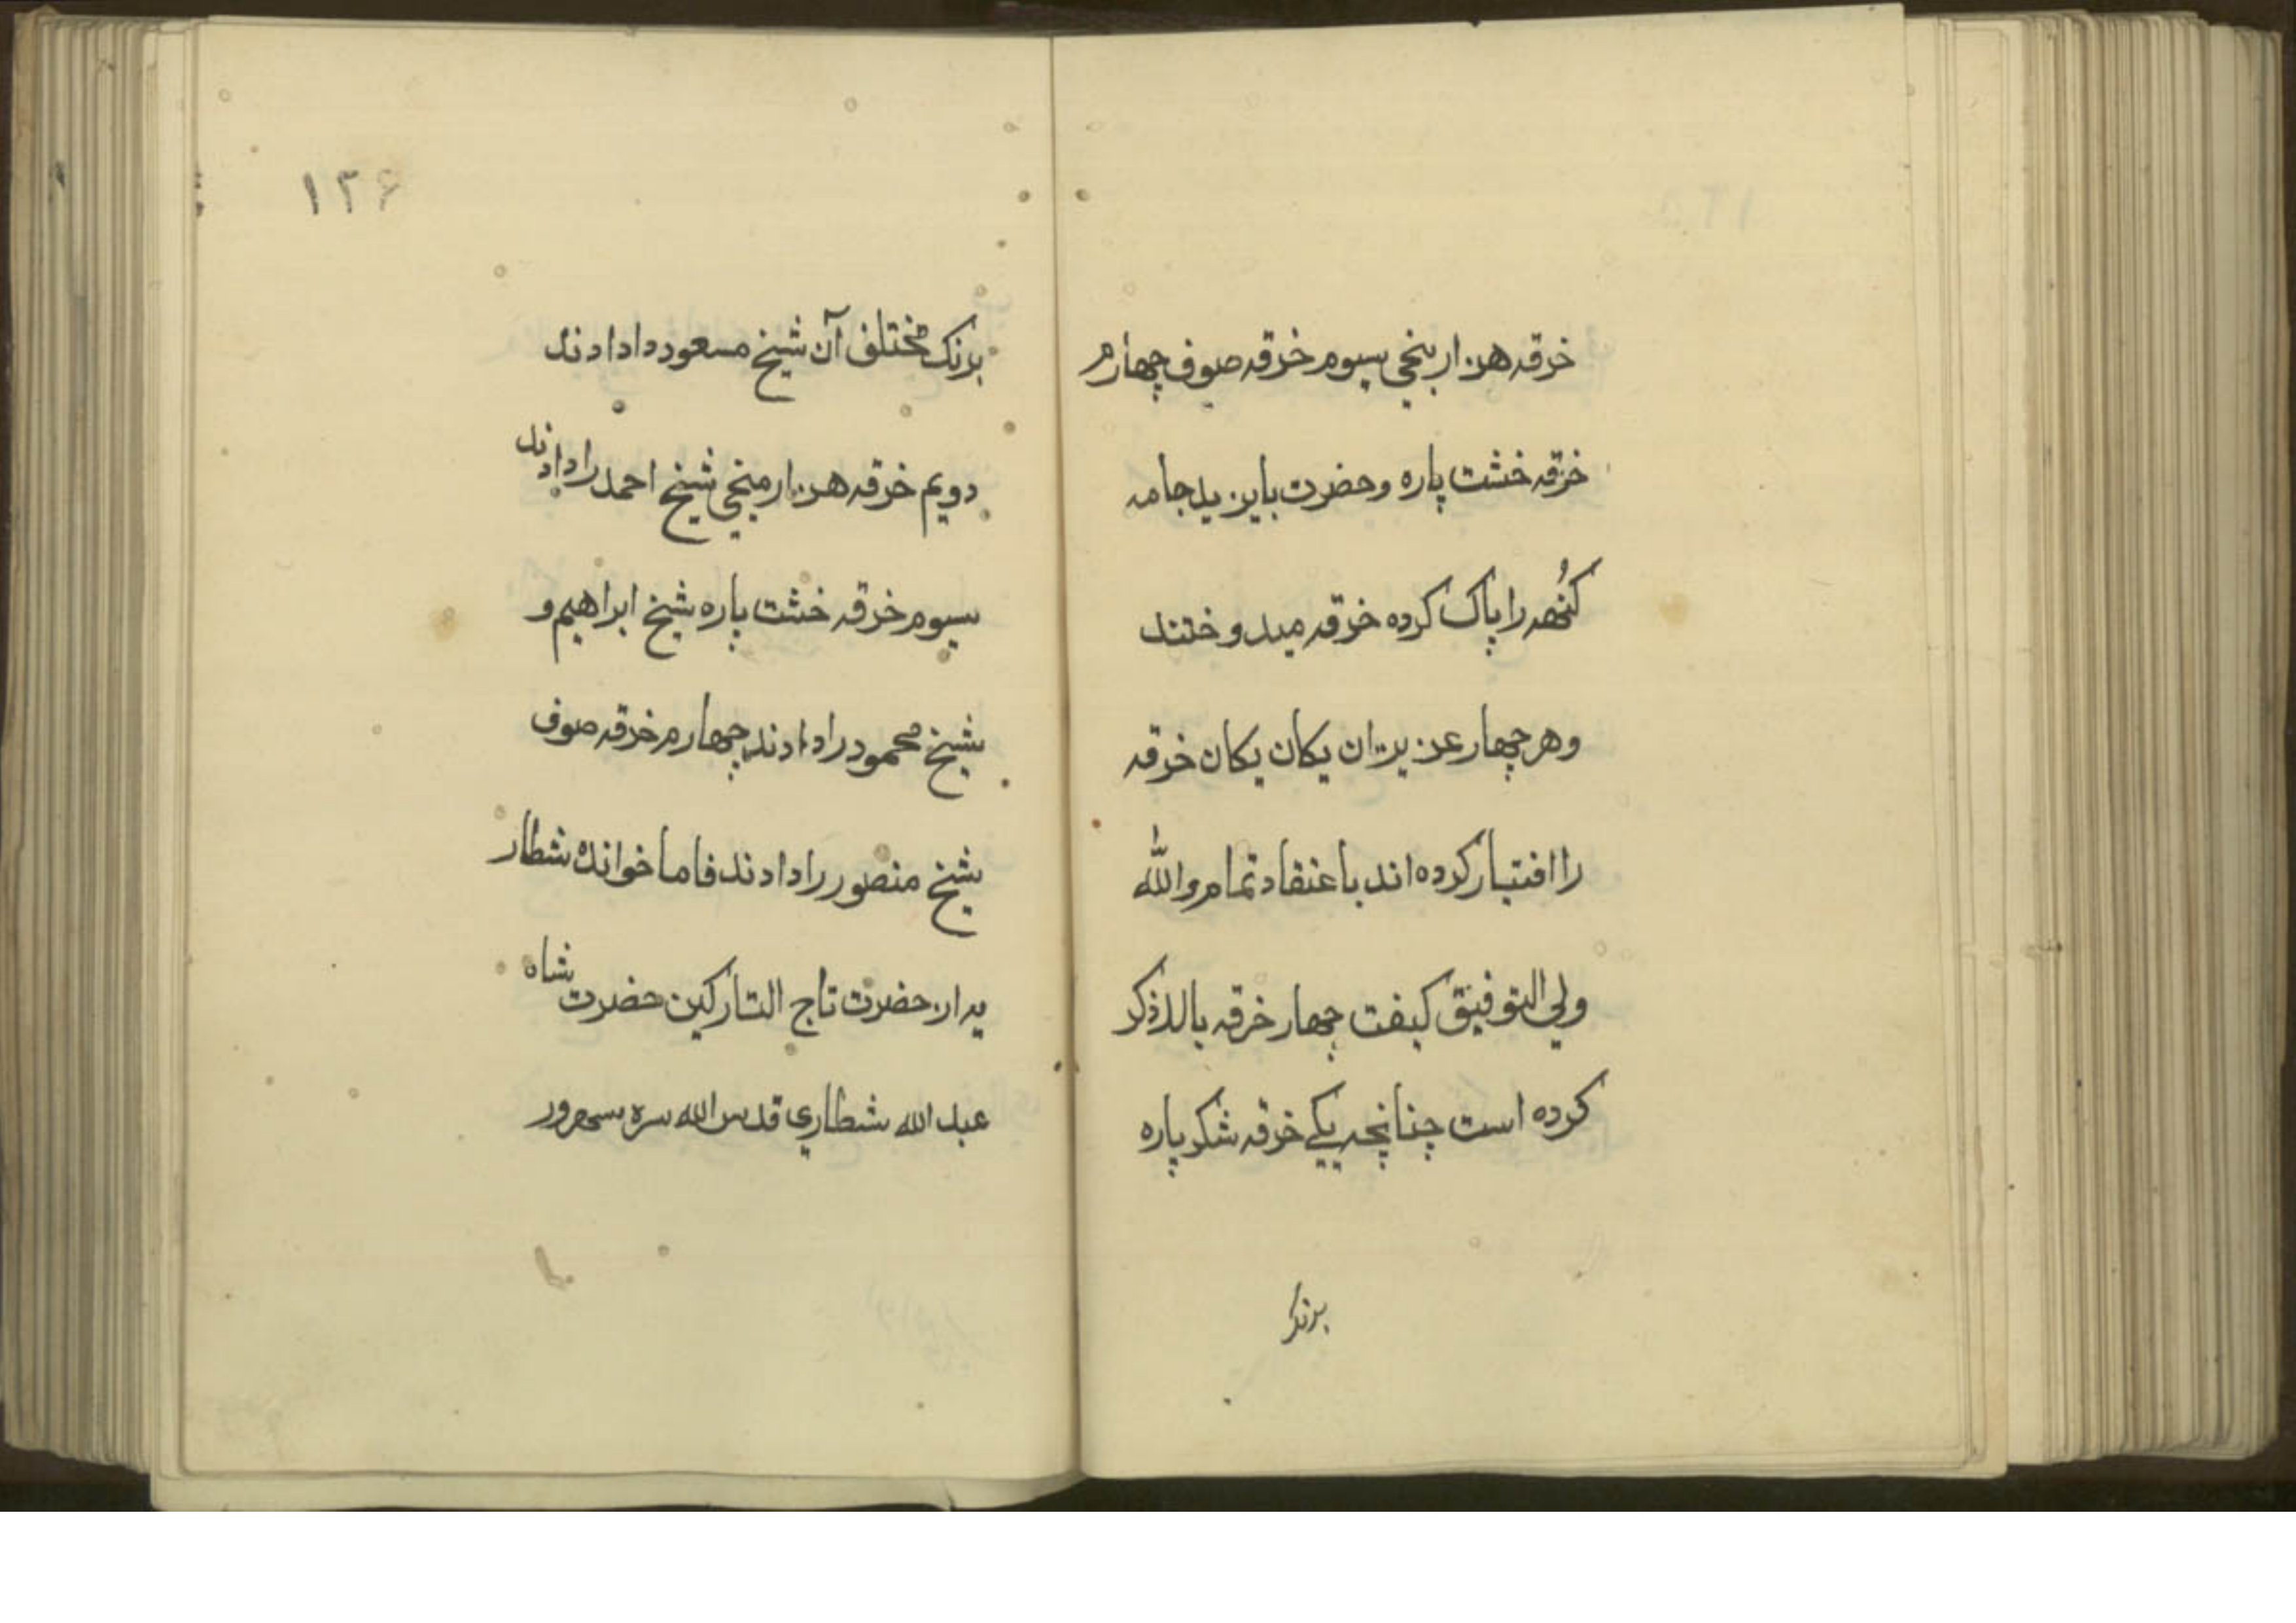 خرقه هزار بنجي سيوم خرقه صوف چهارم
خرقه خشت پاره و حضرت بايزيد جامه
كُنهه را پاک كرده خرقه ميدوختند
و هر چهار عزيزان يكان يكان خرقه
را اختيار كرده اند با عتقاد تمام والله
ولي التوفيق كيفت چهار خرقه بالا ذكر
كرده است چنانچه يكے خرقه شكر پاره
برنک
۱۲۶
برنک مختلف آن شيخ مسعود دادادند
دويم خرقه هزار منجي شيخ احمد را دادند
سيوم خرقه خشت پاره شيخ ابراهيم و
شيخ محمود را دادند چهارم خرقه صوف
شيخ منصور را دادند فاما خوانده شطار
يه از حضرت تاج التاركين حضرت شاه
عبد الله شطاري قدس الله سره